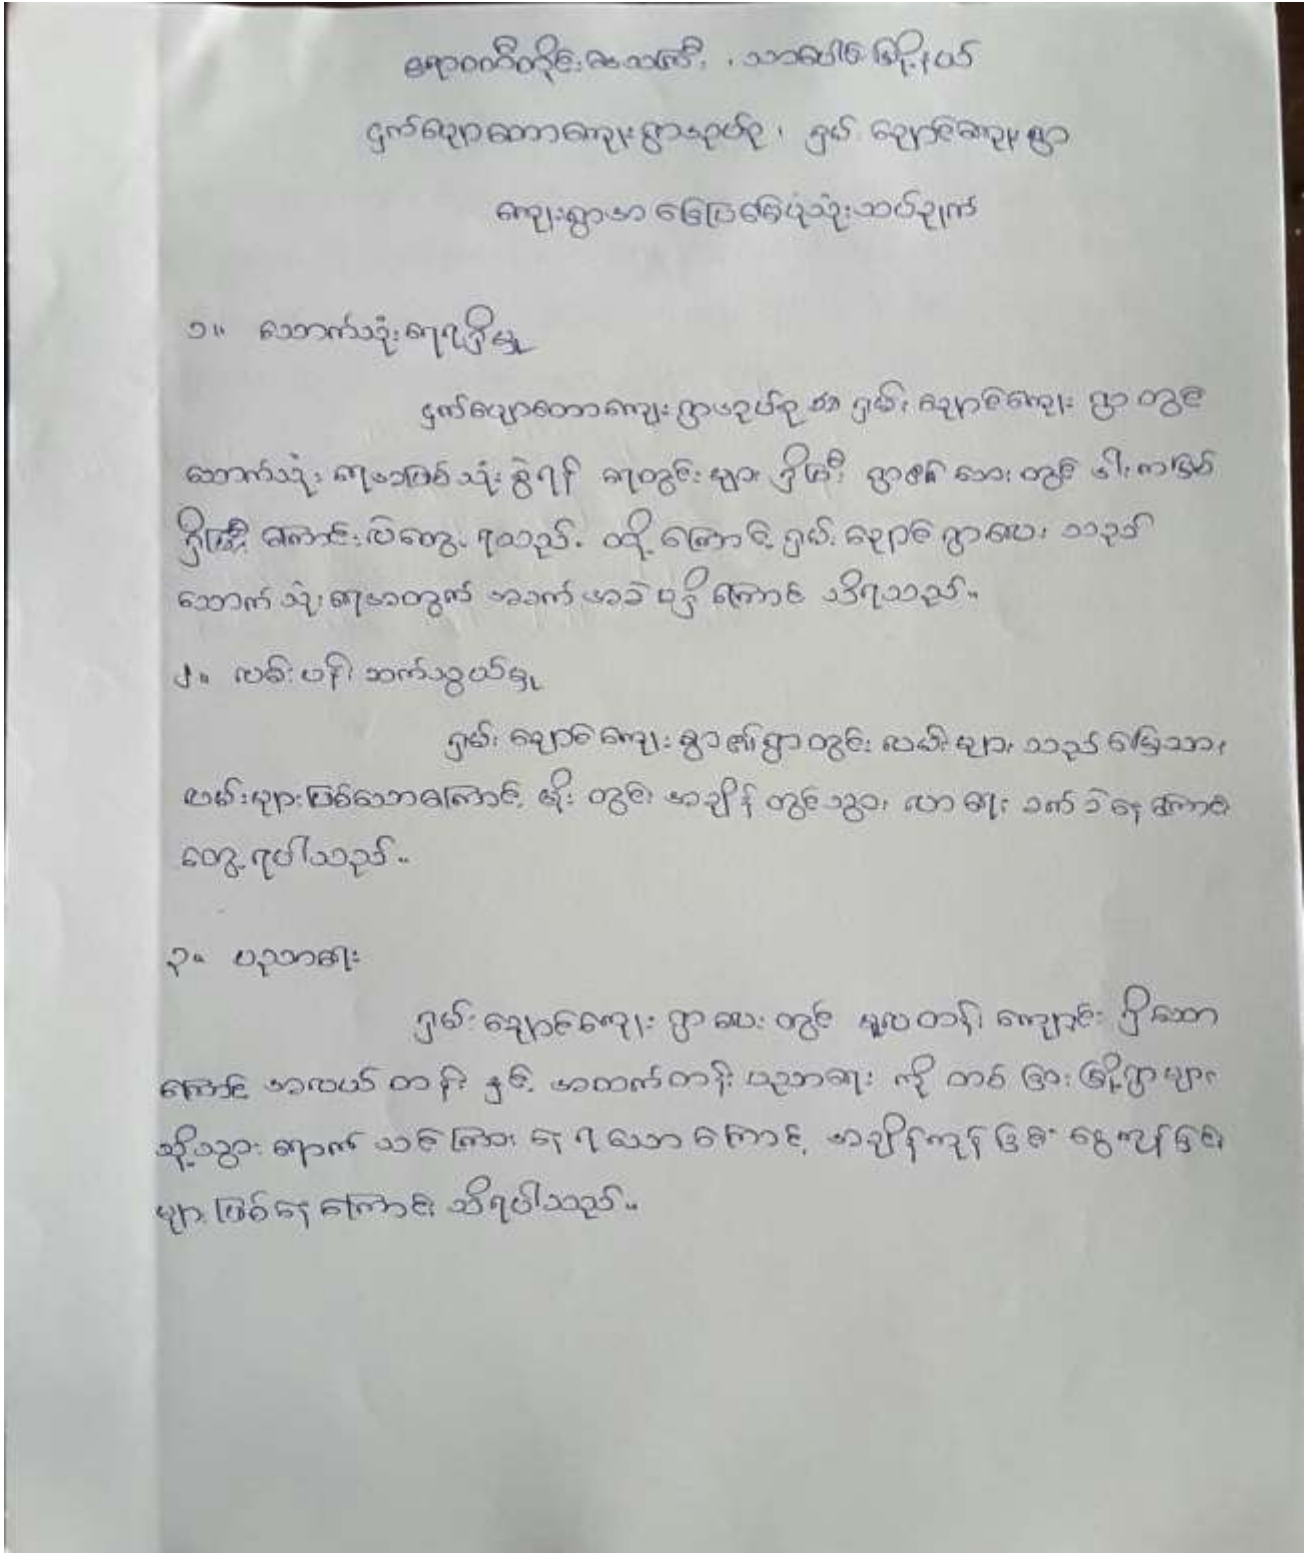 ဧရာဝတီတိုင်းဒေသကြီး၊ သာပေါင်းမြို့နယ်
ငှက်ပျောတောကျေးရွာအုပ်စု၊ ရှမ်းချောင်းကျေးရွာ
ကျေးရွာအခြေပြမြေပုံသုံးသပ်ချက်
၁။ သောက်သုံးရေရရှိမှု
ငှက်ပျောတောကျေးရွာအုပ်စု ရှမ်းချောင်ကျေးရွာတွင်
သောက်သုံးရေအဖြစ်သုံးစွဲရန် ရေတွင်းများရှိပြီး ရွာ၏ဘေးတွင်
ကြောင်းလဲတွေ့ရသည်။ ထို့ကြောင့် ရှမ်းချောင်ရွာလေးသည်
သောက်သုံးရေအတွက် အခက်အခဲမရှိကြောင်း သိရသည်။
၂။ လမ်းပန်းဆက်သွယ်မှု
ရှမ်းချောင်ကျေးရွာ၏ရွာတွင်းလမ်းများသည် မြေသား
လမ်းများဖြစ်သောကြောင့် မိုးတွင်းအချိန်တွင်သွားလာရေးခက်ခဲနေကြောင်း
တွေ့ရပါသည်။
၃။ ပညာရေး
ရှမ်းချောင်ကျေးရွာလေးတွင် မူလတန်းကျောင်းရှိသော
ကြောင့် အလယ်တန်းနှင့် အထက်တန်းပညာရေးကို တစ်ခြားမြို့ရွာများ
သို့သွားရောက်သင်ကြားနေရသောကြောင့် အချိန်ကုန်ခြင်း ငွေကုန်ခြင်း
များဖြစ်နေကြောင်း သိရပါသည်။